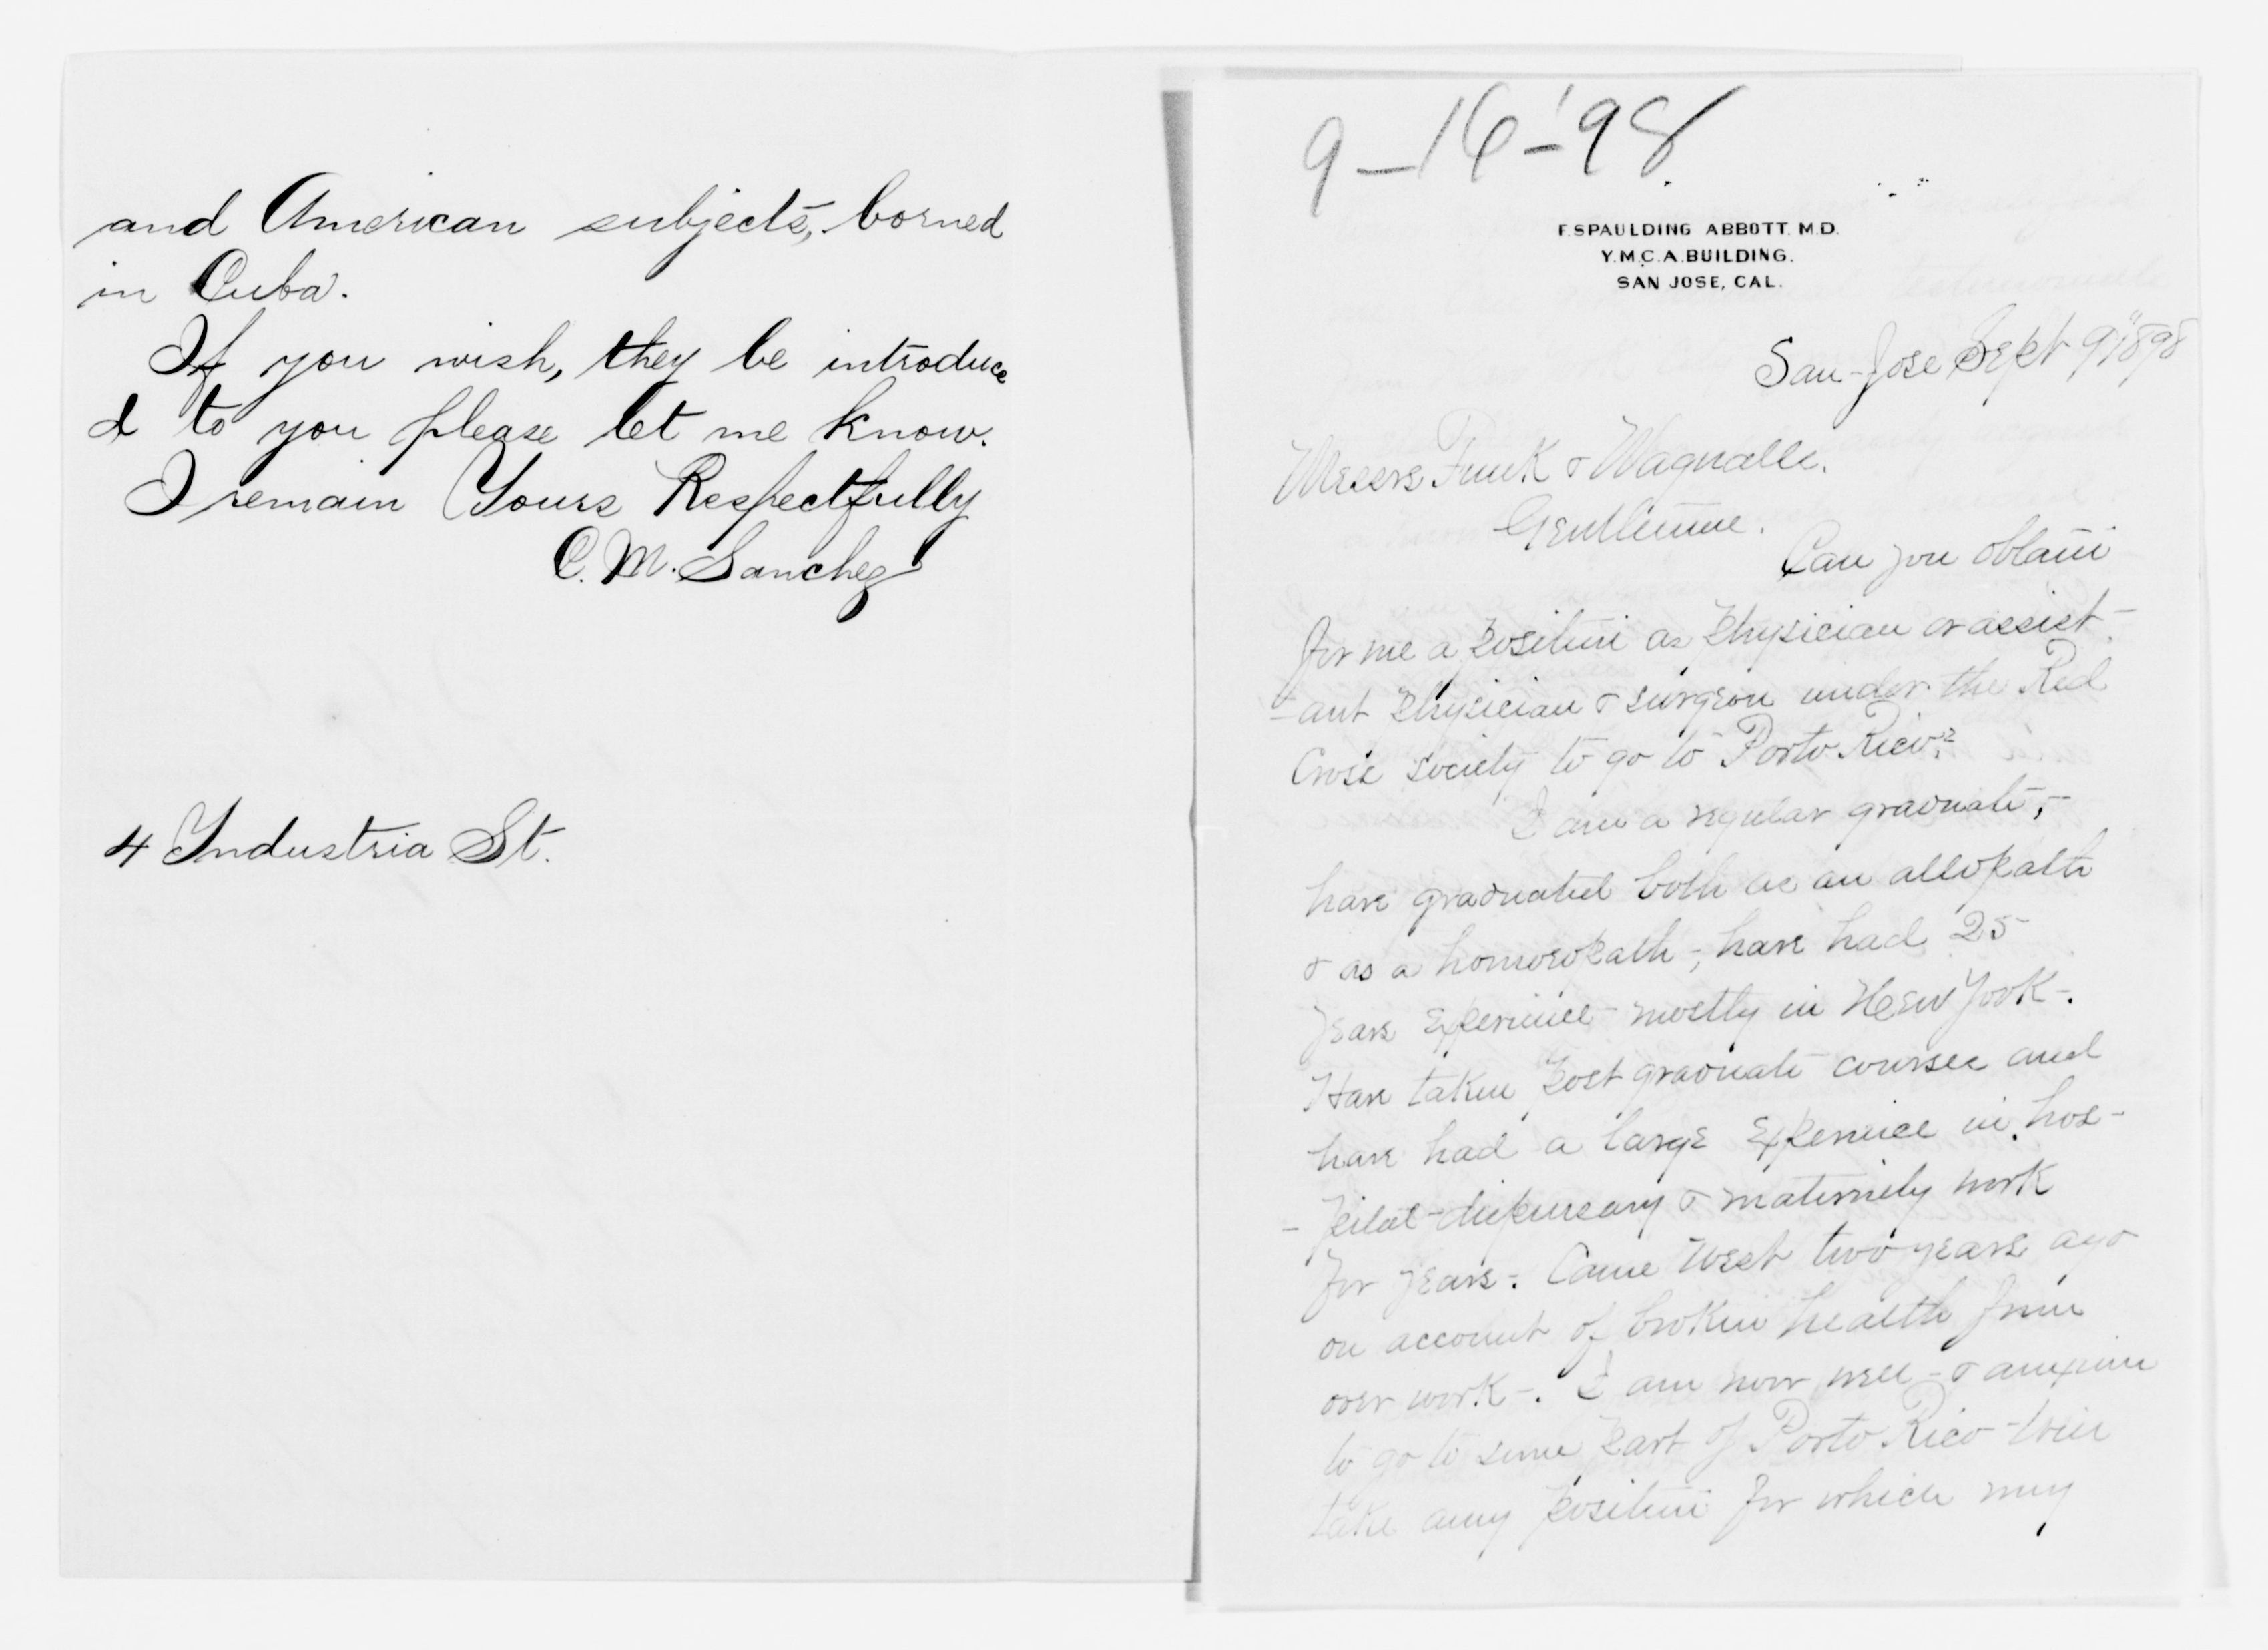 and American subjects, borned
in Cuba.
If you wish, they be introduce
d to you please let me know.
I remain Yours Respectfully
C. M. Sanchez
4 Industria St.
9-16-'98
F. SPAULDING ABBOTT. M.D.
Y.M.C.A. BUILDING.
SAN JOSE, CAL.
San-Jose Sept 9" 1898
Messrs Funk & Wagnalls.
Gentlemen.
Can you obtain
for me a position as Physician or assist-
-ant Physician & surgeon under the Red
Cross society to go to Porto Rico?
I am a regular graduate,-
have graduated both as an allopath
& as a homoeopath-, have had 25
years experience - mostly in New York-.
Have taken post graduate courses and
have had a large experience in hos-
-pital-dispensary & maternity work
for years-. Came West two years ago
on account of broken health from
over work-. I am now well-& anxious
to go to some part of Porto Rico-Will
take any position for which my